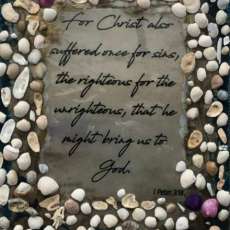 For Christ also
suffered once for sins,
the righteous for the
unrighteous, that he
might bring us to
God.
1 Peter 3:18